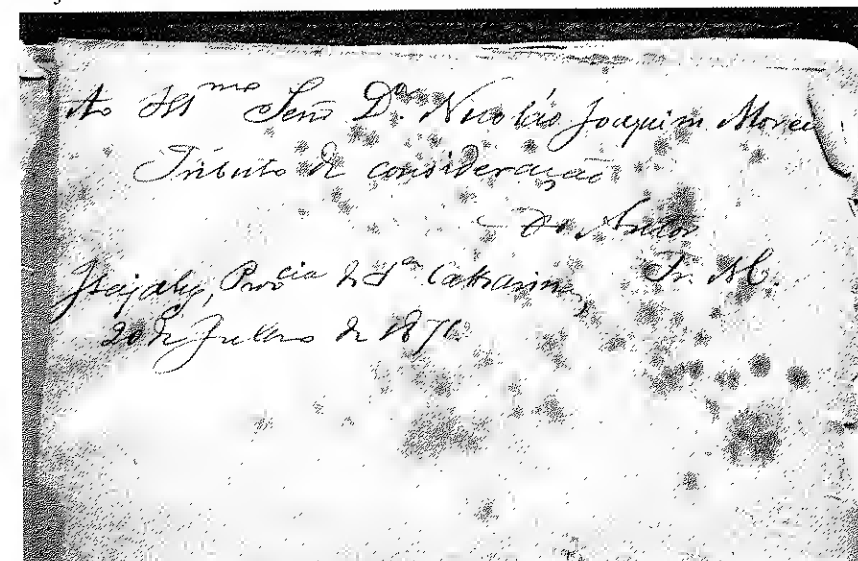 Ao Illmo Senr Dor. Nicoláo Joaquim Morei
Tributo de consideração
Do Autor
Itajahy, Procia de Sta Catharina, Fr. M.
20 de Julho de 1871.